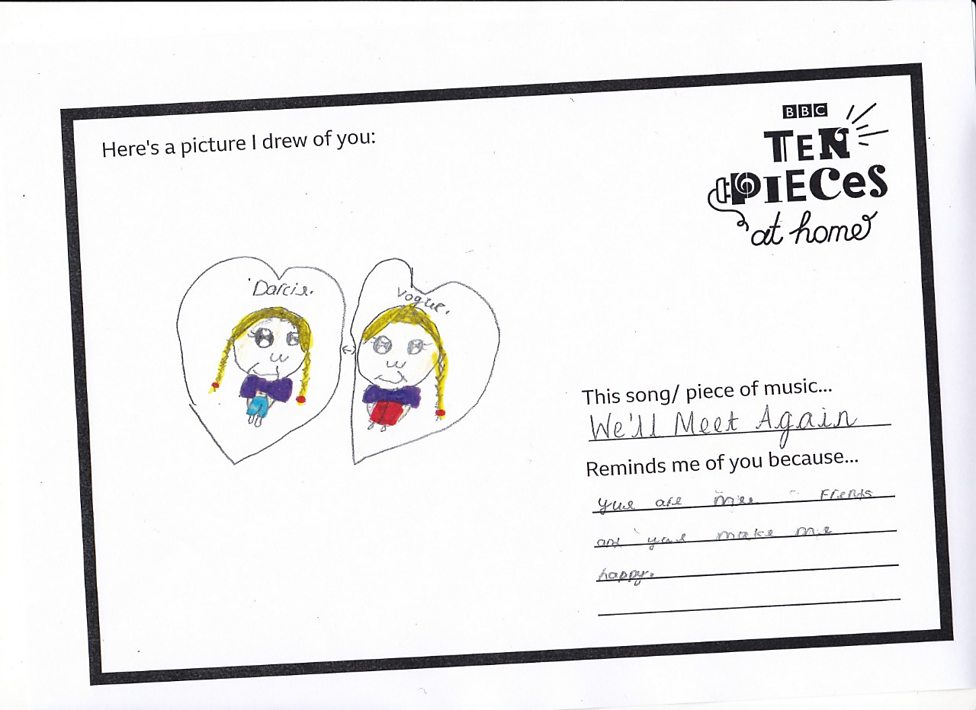 Here's a picture I drew of you:
BBC
TEN
PIECES
at home
Darcie.
Vogue.
This song/ piece of music...
We'll Meet Again
Reminds me of you because...
yue are mee Frends
and yue make me
happy.